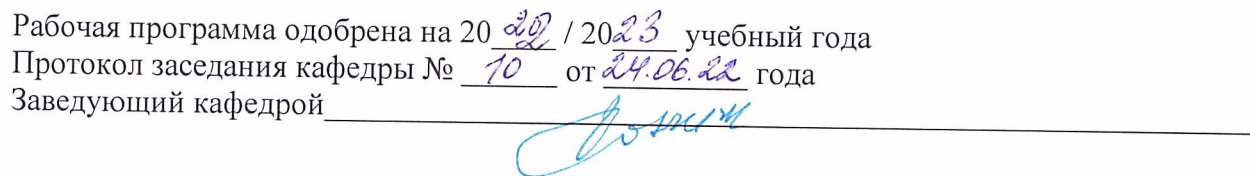 Рабочая программа одобрена на 2022 / 2023 учебный года
Протокол заседания кафедры № 10 от 24.06.22 года
Заведующий кафедрой